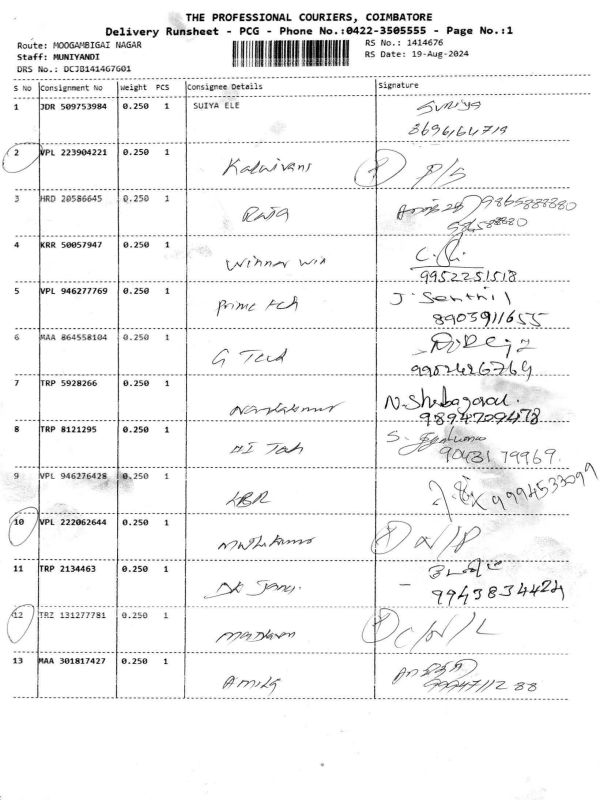 THE PROFESSIONAL COURIERS, COIMBATORE
Delivery Runsheet - PCG - Phone No.:0422-3505555 - Page No.:1
Route: MOOGAMBIGAI NAGAR
RS No.: 1414676
Staff: MUNIYANDI
RS Date: 19-Aug-2024
DRS No.: DCJB1414G7G01
S No Consignment No Weight PCS Consignee Details Signature
1 JDR 509753984 0.250 1 SUIYA ELE Suriya
2 VPL 223904221 0.250 1 Kalaivani P/S
3 HRD 20586645 0.250 1 Raja 9865888880
4 KRR 50057947 0.250 1 Winner Win
9952251518
5 VPL 946277769 0.250 1 Prime Tch J. Senthil
8903911655
6 MAA 864558104 0.250 1 G Tech
9952426769
7 TRP 5928266 0.250 1 Nandakumar N. Shebagaval.
9894709478
8 TRP 8121295 0.250 1 HI Tah S.
90431 79969.
9 VPL 946276428 0.250 1 LBR 9994533099
10 VPL 222062644 0.250 1 N/P
11 TRP 2134463 0.250 1
9943834424
12 TRZ 131277781 0.250 1 C/N/L
13 MAA 301817427 0.250 1